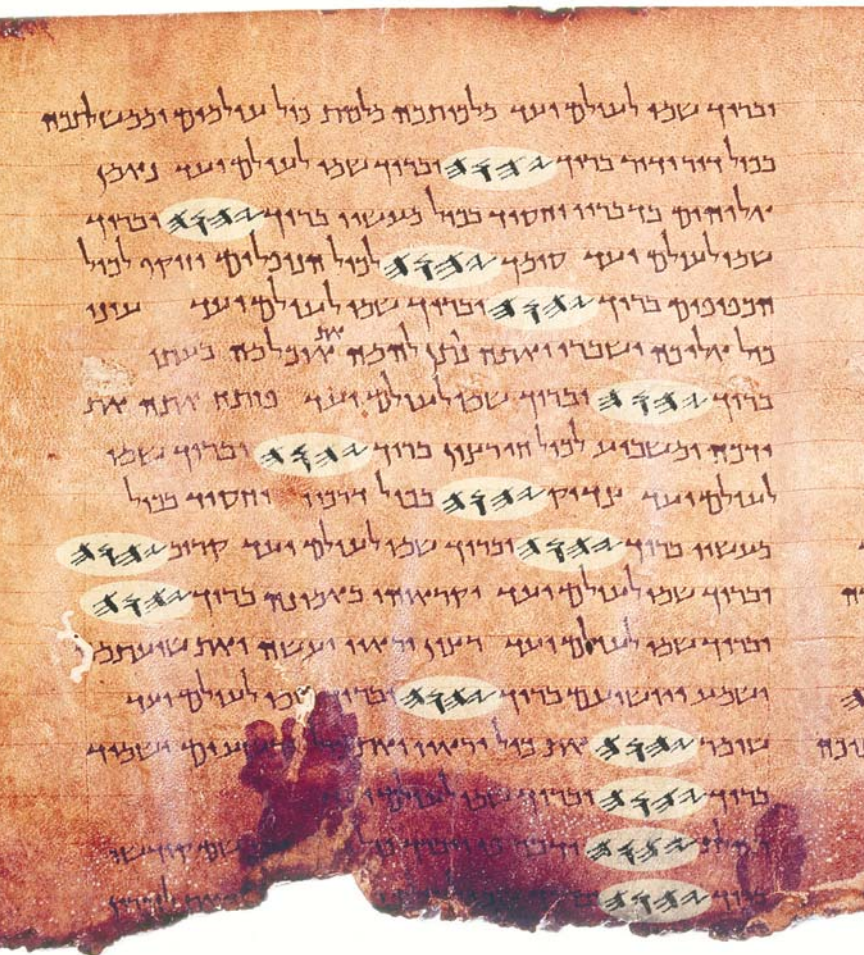 וברוך שמו לעולם ועד מלכותכה מלכות כול עולמים וממשלתכה
בכול דור ודור ברוך 𐤉𐤄𐤅𐤄 וברוך שמו לעולם ועד נאמן
אלוהים בדבריו וחסיד בכול מעשיו ברוך 𐤉𐤄𐤅𐤄 וברוך
שמו לעולם ועד סומך 𐤉𐤄𐤅𐤄 לכול הנופלים וזוקף לכול
הכפופים ברוך 𐤉𐤄𐤅𐤄 וברוך שמו לעולם ועד עיני
כול אליכה ישברו ואתה נותן להמה את אוכלמה בעתו
ברוך 𐤉𐤄𐤅𐤄 וברוך שמו לעולם ועד פותח אתה את
ידכה ומשביע לכול חי רצון ברוך 𐤉𐤄𐤅𐤄 וברוך שמו
לעולם ועד צדיק 𐤉𐤄𐤅𐤄 בכול דרכיו וחסיד בכול
מעשיו ברוך 𐤉𐤄𐤅𐤄 וברוך שמו לעולם ועד קרוב 𐤉𐤄𐤅𐤄
וברוך שמו לעולם ועד יקראוהו באמונה ברוך 𐤉𐤄𐤅𐤄
וברוך שמו לעולם ועד רצון יריאיו יעשה ואת
ישמע ויושיעם ברוך 𐤉𐤄𐤅𐤄 וברוך שמו לעולם ועד
שומר 𐤉𐤄𐤅𐤄 את כול יריאיו ואת ישמיד
ברוך 𐤉𐤄𐤅𐤄 וברוך שמו לעולם
𐤉𐤄𐤅𐤄 ידבר פי ויברך כול שם קודשו
ברוך 𐤉𐤄𐤅𐤄 לזכרון